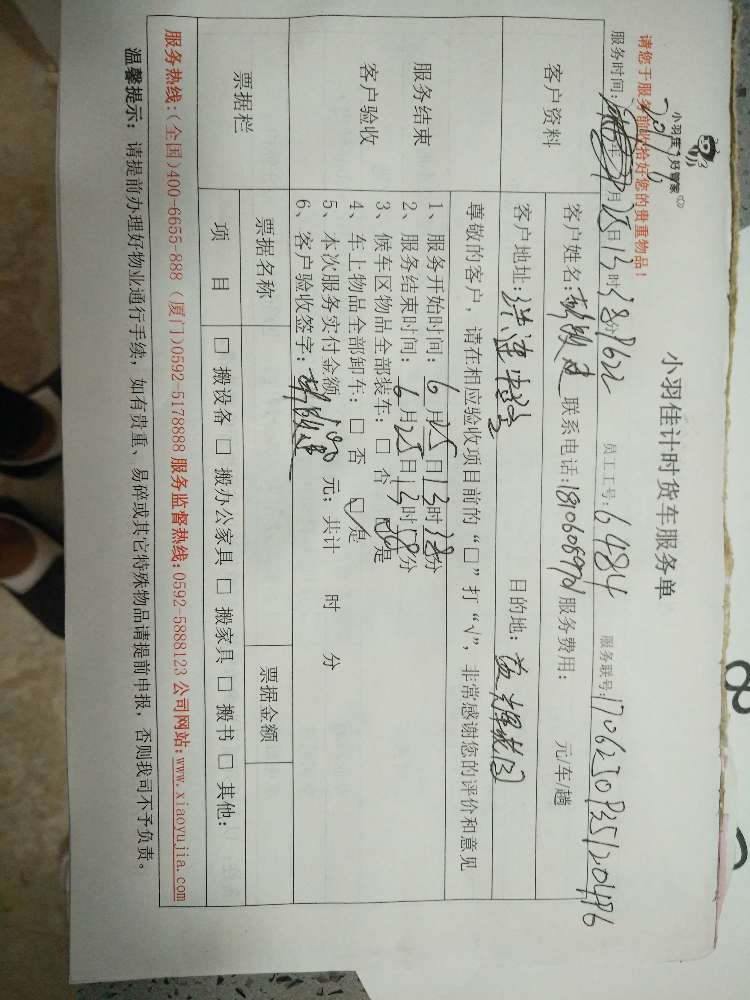 小羽佳 好管家
小羽佳计时货车服务单
请您于服务前收拾好您的贵重物品!
服务时间: 年 月25日13时28分 员工工号:6484 服务联号:
客户资料
客户姓名: 联系电话: 服务费用: 元/车/趟
客户地址: 目的地:
服务结束
客户验收
尊敬的客户,请在相应验收项目前的“□”打“√”,非常感谢您的评价和意见
1、服务开始时间:6月25日13时28分
2、服务结束时间:6月25日13时58分
3、候车区物品全部装车:□ 否 □ 是
4、车上物品全部卸车:□ 否 □ 是
5、本次服务实付金额: 元;共计 时 分
6、客户验收签字:
票据栏
票据名称
票据金额
项 目
□ 搬设备 □ 搬办公家具 □ 搬家具 □ 搬书 □ 其他:
服务热线:(全国)400-6655-888 (厦门)0592-5178888 服务监督热线:0592-5888123 公司网站:www.xiaoyujia.com
温馨提示:请提前办理好物业通行手续,如有贵重、易碎或其它特殊物品请提前申报,否则我司不予负责。